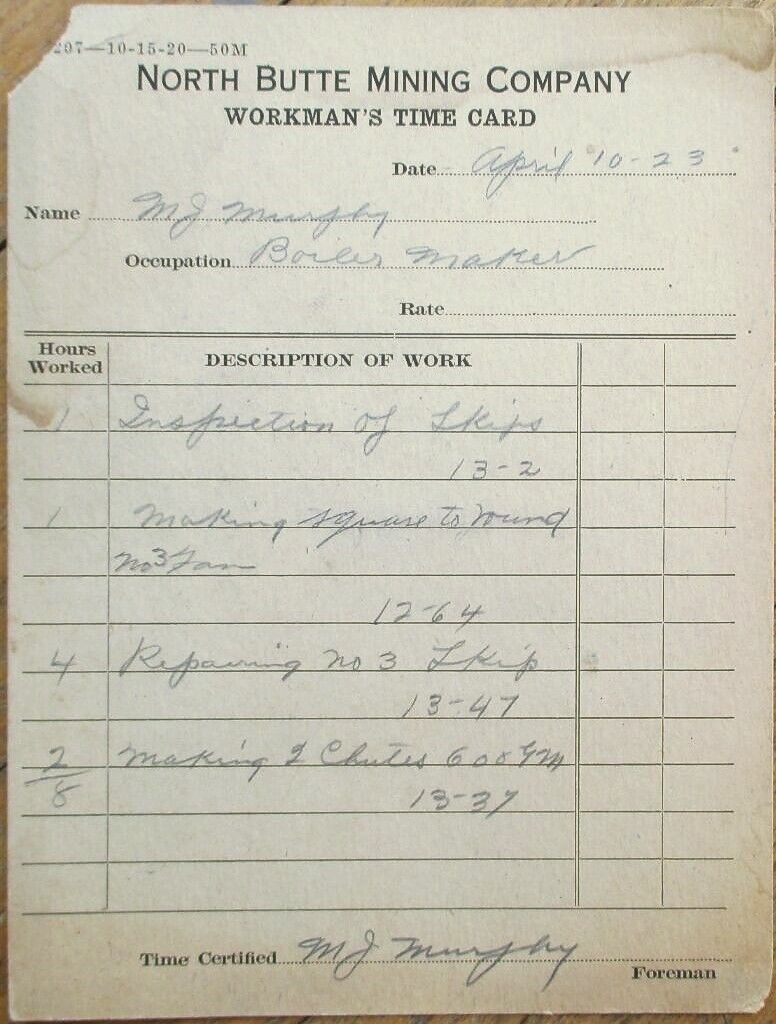 207—10-15-20—50M
NORTH BUTTE MINING COMPANY
WORKMAN'S TIME CARD
Date April 10-23
Name MJ Murphy
Occupation Boiler Maker
Rate
Hours Worked DESCRIPTION OF WORK
1 Inspection of Skips
13-2
1 Making square to round
No 3 Fan
12-64
4 Repairing No 3 Skip
13-47
2 Making 2 Chutes 600
8 13-37
Time Certified MJ Murphy
Foreman